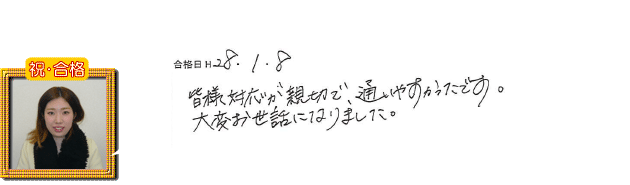 祝・合格
合格日 H28.1.8
皆様対応が親切で、通いやすかったです。
大変お世話になりました。